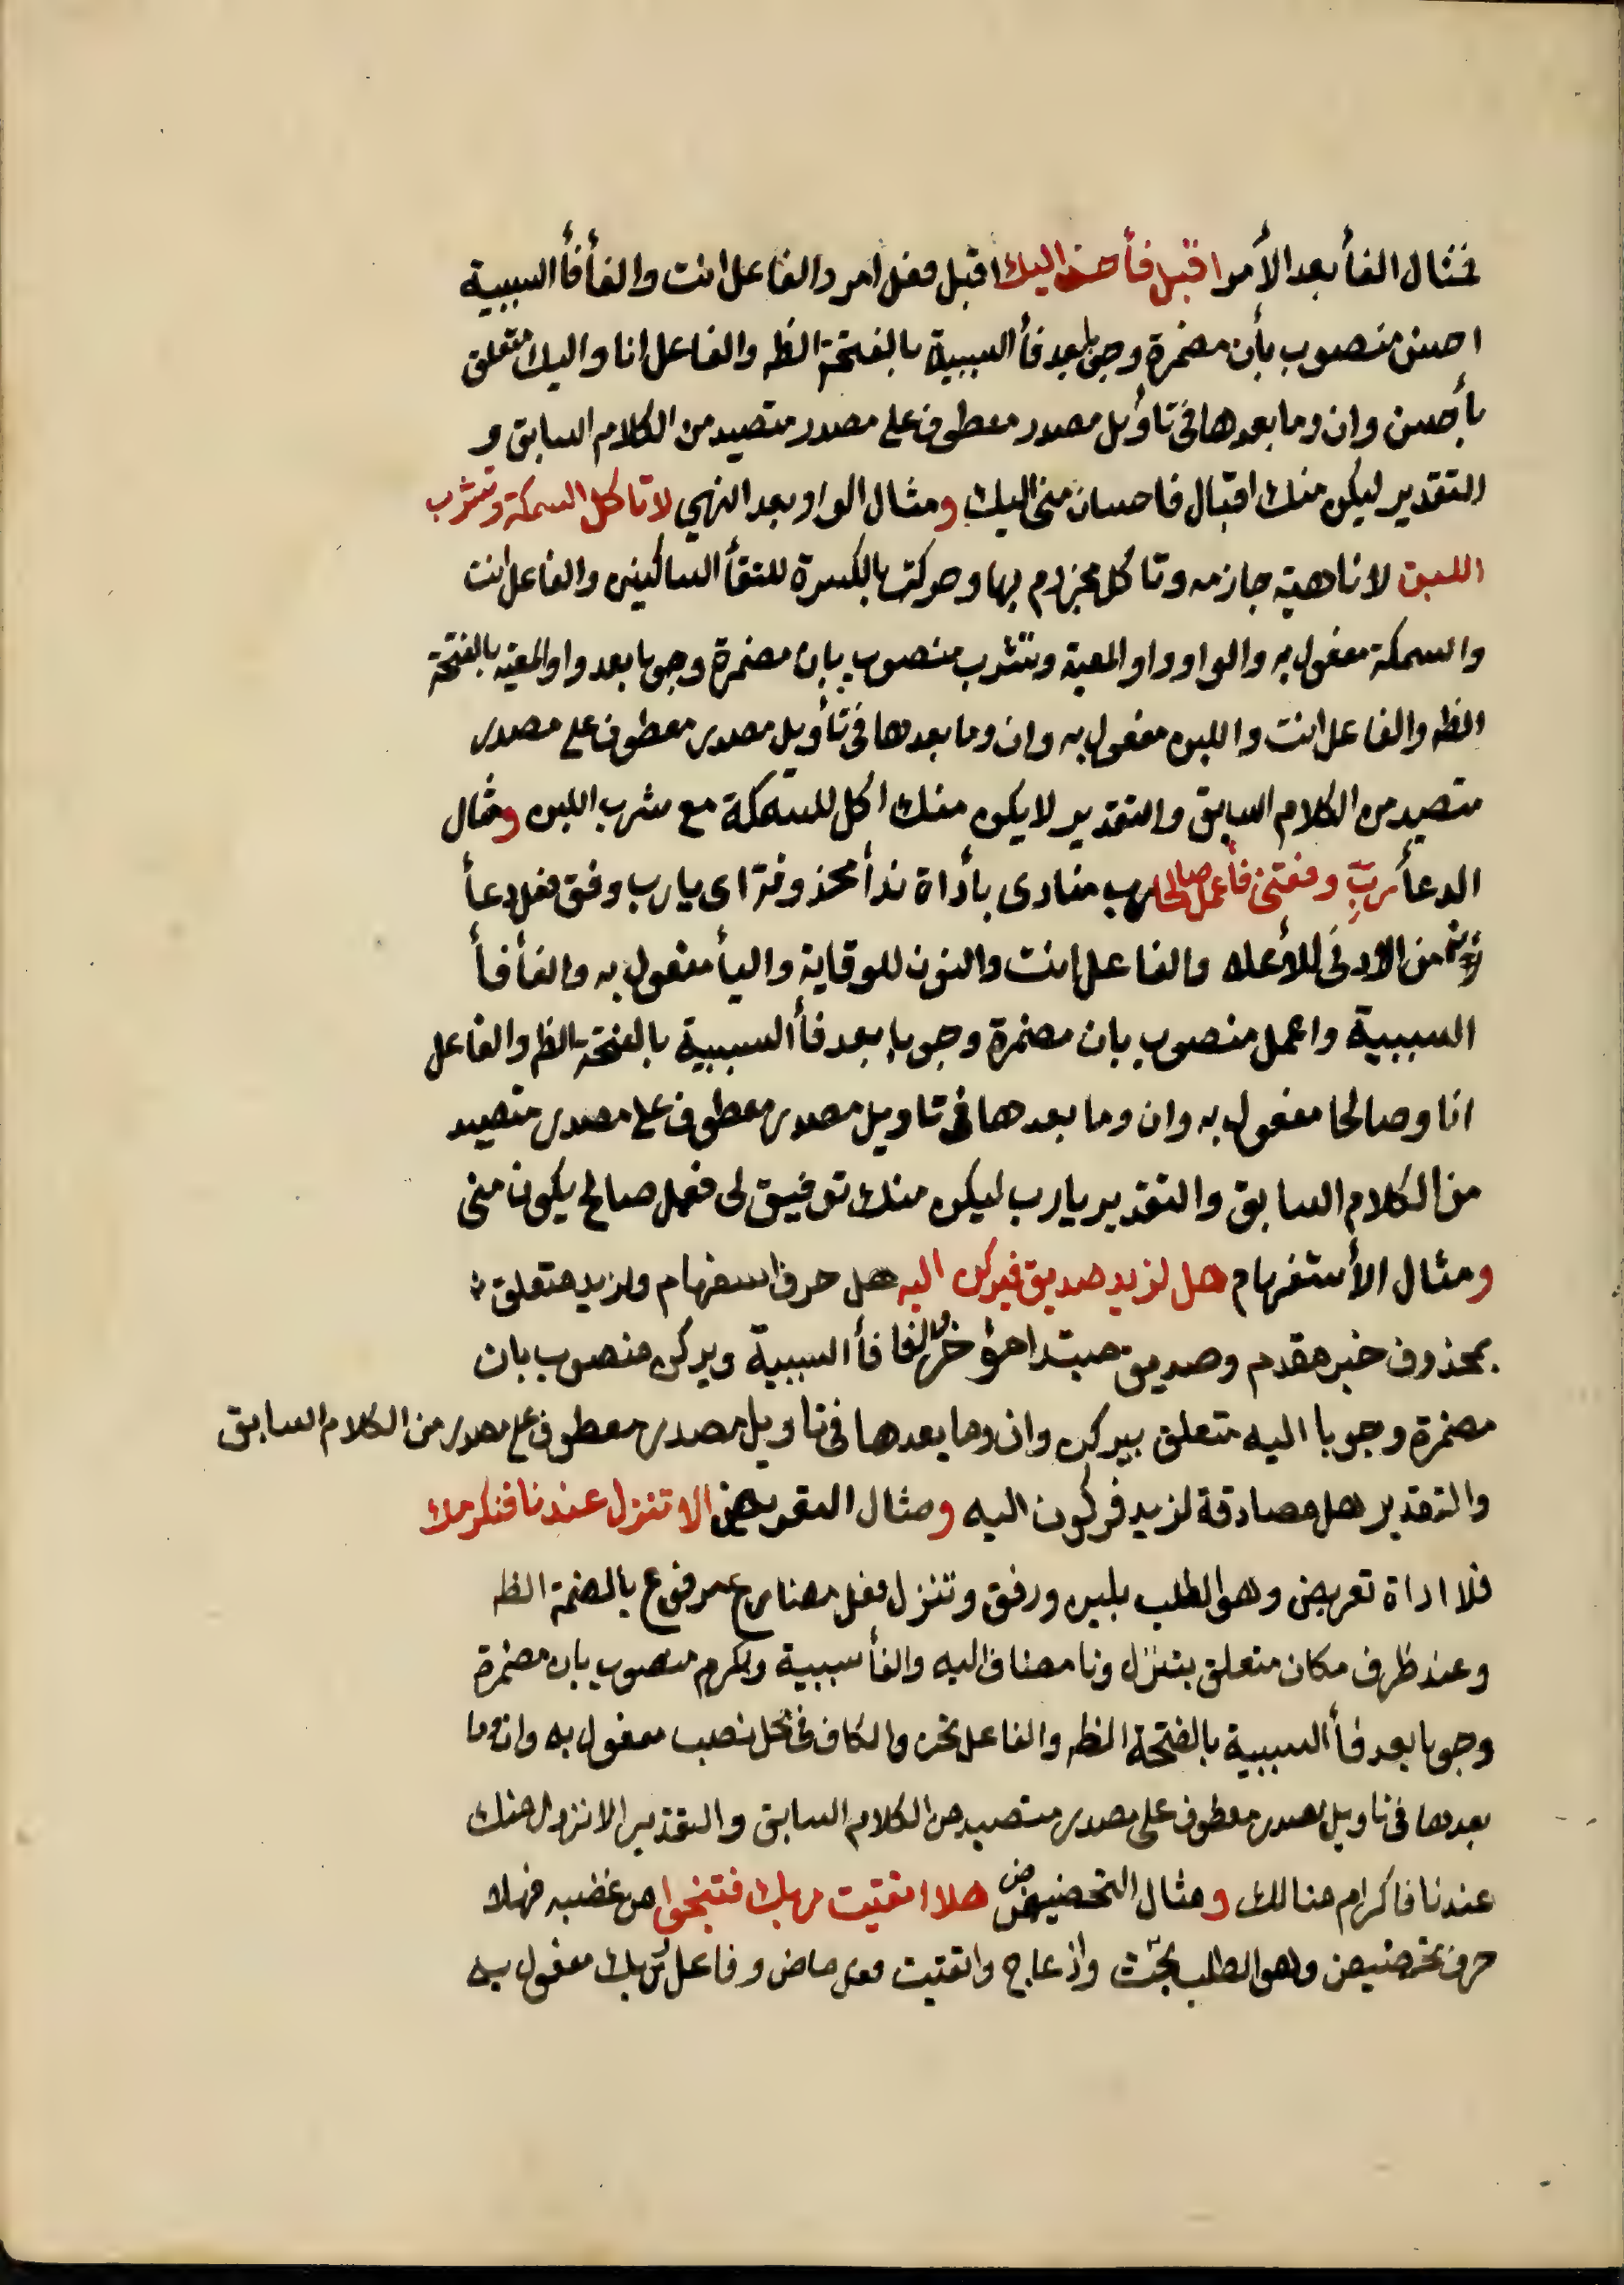 فمثال الفأ بعد الأمر اقبل فأحسن اليك اقبل فعل امر والفاعل انت والفأ فأ السببية
احسن منصوب بأن مضمرة وجوبا بعد فأ السببية بالفتحة الظه والفاعل انا واليك متعلق
بأحسن وان وما بعدها في تأويل مصدر معطوف على مصدر متصيد من الكلام السابق و
التقدير ليكن منك اقبال فاحسان مني اليك ومثال الواو بعد النهي لا تاكل السمكة وتشرب
اللبن لا ناهية جازمه وتاكل مجزوم بها وحركته بالكسرة للتقأ الساكنين والفاعل انت
والسمكة مفعول به والواو واو المعية وتشرب منصوب بان مضمرة وجوبا بعد واو المعية بالفتحة
الظه والفاعل انت واللبن مفعول به وان وما بعدها في تأويل مصدر معطوف على مصدر
متصيد من الكلام السابق والتقدير لا يكن منك اكل للسمكة مع شرب اللبن ومثال
الدعأ ربّ وفقني فأعمل صالحا رب منادى بأداة ندأ محذوفة اى يا رب وفق فعل دعأ
من الادنى للأعلا والفاعل انت والنون للوقاية واليأ مفعول به والفأ فأ
السببية واعمل منصوب بان مضمرة وجوبا بعد فأ السببية بالفتحة الظه والفاعل
انا وصالحا مفعول به وان وما بعدها في تاويل مصدر معطوف على مصدر متصيد
من الكلام السابق والتقدير يارب ليكن منك توفيق لى فعمل صالح يكون منى
ومثال الأستفهام هل لزيد صديق فيركن اليه هل حرف استفهام ولزيد متعلق
بمحذوف خبر مقدم وصديق مبتدا مؤخر والفا فأ السببية ويركن منصوب بان
مضمرة وجوبا اليه متعلق بيركن وان وما بعدها في تاويل مصدر معطوف على مصدر من الكلام السابق
والتقدير هل مصادقة لزيد فركون اليه ومثال التعريض الا تنزل عندنا فنكرمك
فلا اداة تعريض وهو الطلب بلين ورفق وتنزل فعل مضارع مرفوع بالضمة الظه
وعند ظرف مكان متعلق بتنزل ونا مضاف اليه والفأ سببية ونكرم منصوب بان مضمرة
وجوبا بعد فأ السببية بالفتحة الظه والفاعل نحن والكاف في محل نصب مفعول به وان وما
بعدها في تاويل مصدر معطوف على مصدر متصيد من الكلام السابق والتقدير الا نزول منك
عندنا فاكرام منا لك ومثال التحضيض هلا اتقيت ربك فتنجوا من غضبه فهلا
حرف تحضيض وهو الطلب بحّث واذعاج واتقيت فعل ماض وفاعل ربك مفعول به